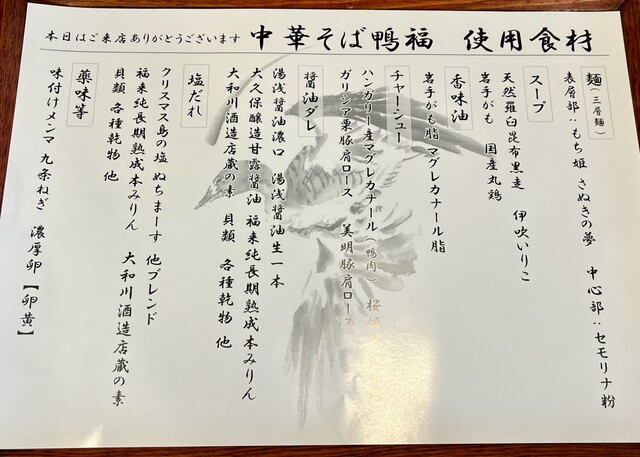 本日はご来店ありがとうございます
中華そば鴨福 使用食材
麺(三層麺)
表層部:もち姫 さぬきの夢 中心部:セモリナ粉
スープ
天然羅臼昆布黒走 伊吹いりこ
岩手がも 国産丸鶏
香味油
岩手がも脂 マグレカナール脂
チャーシュー
ハンガリー産マグレカナール(鴨肉) 桜
ガリシア栗豚肩ロース 美明豚肩ロース
醤油ダレ
湯浅醤油濃口 湯浅醤油生一本
大久保醸造甘露醤油 福来純長期熟成本みりん
大和川酒造店蔵の素 貝類 各種乾物 他
塩だれ
クリスマス島の塩 ぬちまーす 他ブレンド
福来純長期熟成本みりん 大和川酒造店蔵の素
貝類 各種乾物 他
薬味等
味付けメンマ 九条ねぎ 濃厚卵【卵黄】